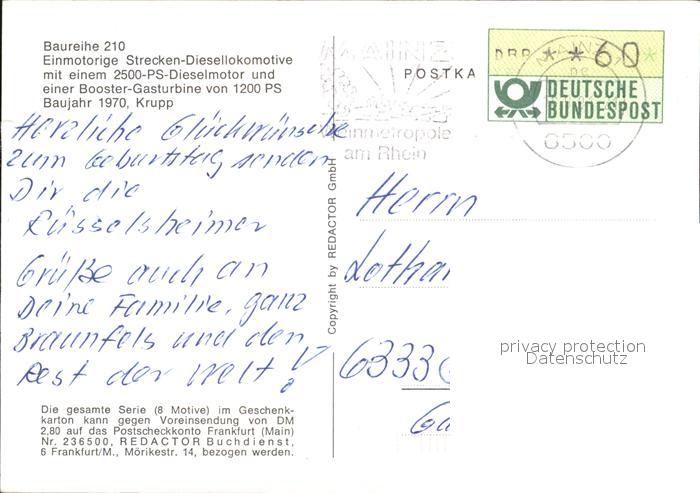 Baureihe 210
Einmotorige Strecken-Diesellokomotive
mit einem 2500-PS-Dieselmotor und
einer Booster-Gasturbine von 1200 PS
Baujahr 1970, Krupp
Herzliche Glückwünsche
zum Geburtstag senden
Dir die
Rüsselsheimer
Grüße auch an
Deine Familie, ganz
Braunfels und den
Rest der Welt!
Die gesamte Serie (8 Motive) im Geschenk-
karton kann gegen Voreinsendung von DM
2,80 auf das Postscheckkonto Frankfurt (Main)
Nr. 236500, REDACTOR Buchdienst,
6 Frankfurt/M., Mörikestr. 14, bezogen werden.
Copyright by REDACTOR GmbH
MAINZ
am Rhein
POSTKA
DBP * * 60 *
DEUTSCHE
BUNDESPOST
6500
Herrn
Lotha
6333
privacy protection
Datenschutz